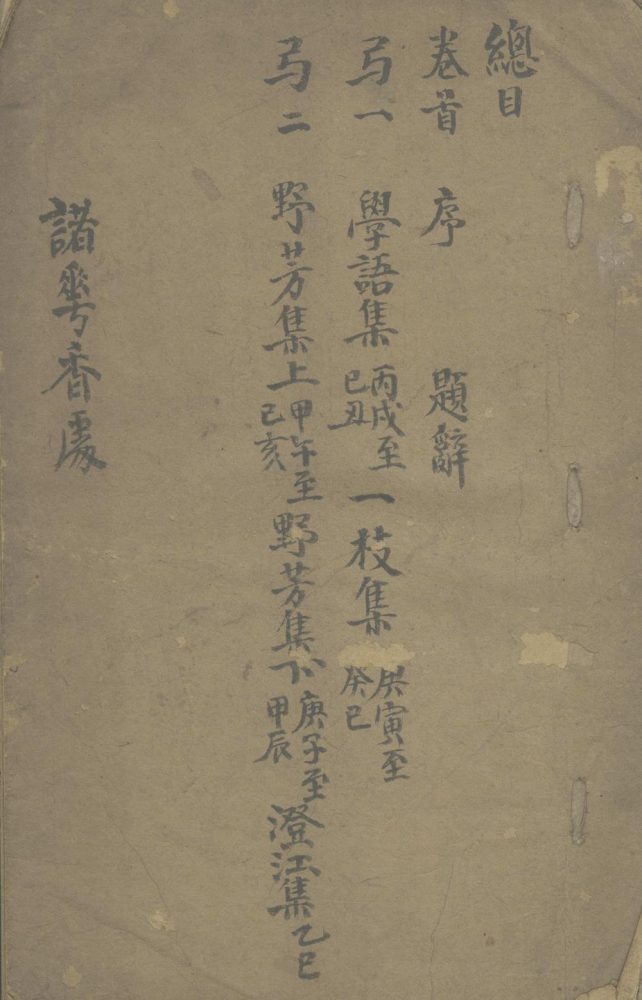 總目
卷首　序　題辭
弓一　學語集 丙戌至己丑　一枝集 庚寅至癸巳
弓二　野芳集上 甲午至己亥　野芳集下 庚子至甲辰　澄江集 乙巳
諸粤香處